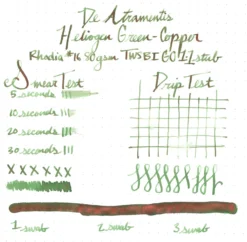 De Atramentis
Heliogen Green-Copper
Rhodia #16 80gsm TWSBI GO 1.1 stub
Smear Test
Drip Test
5 seconds
10 seconds
20 seconds
30 seconds
X X X X X X
1 swab 2 swab 3 swab